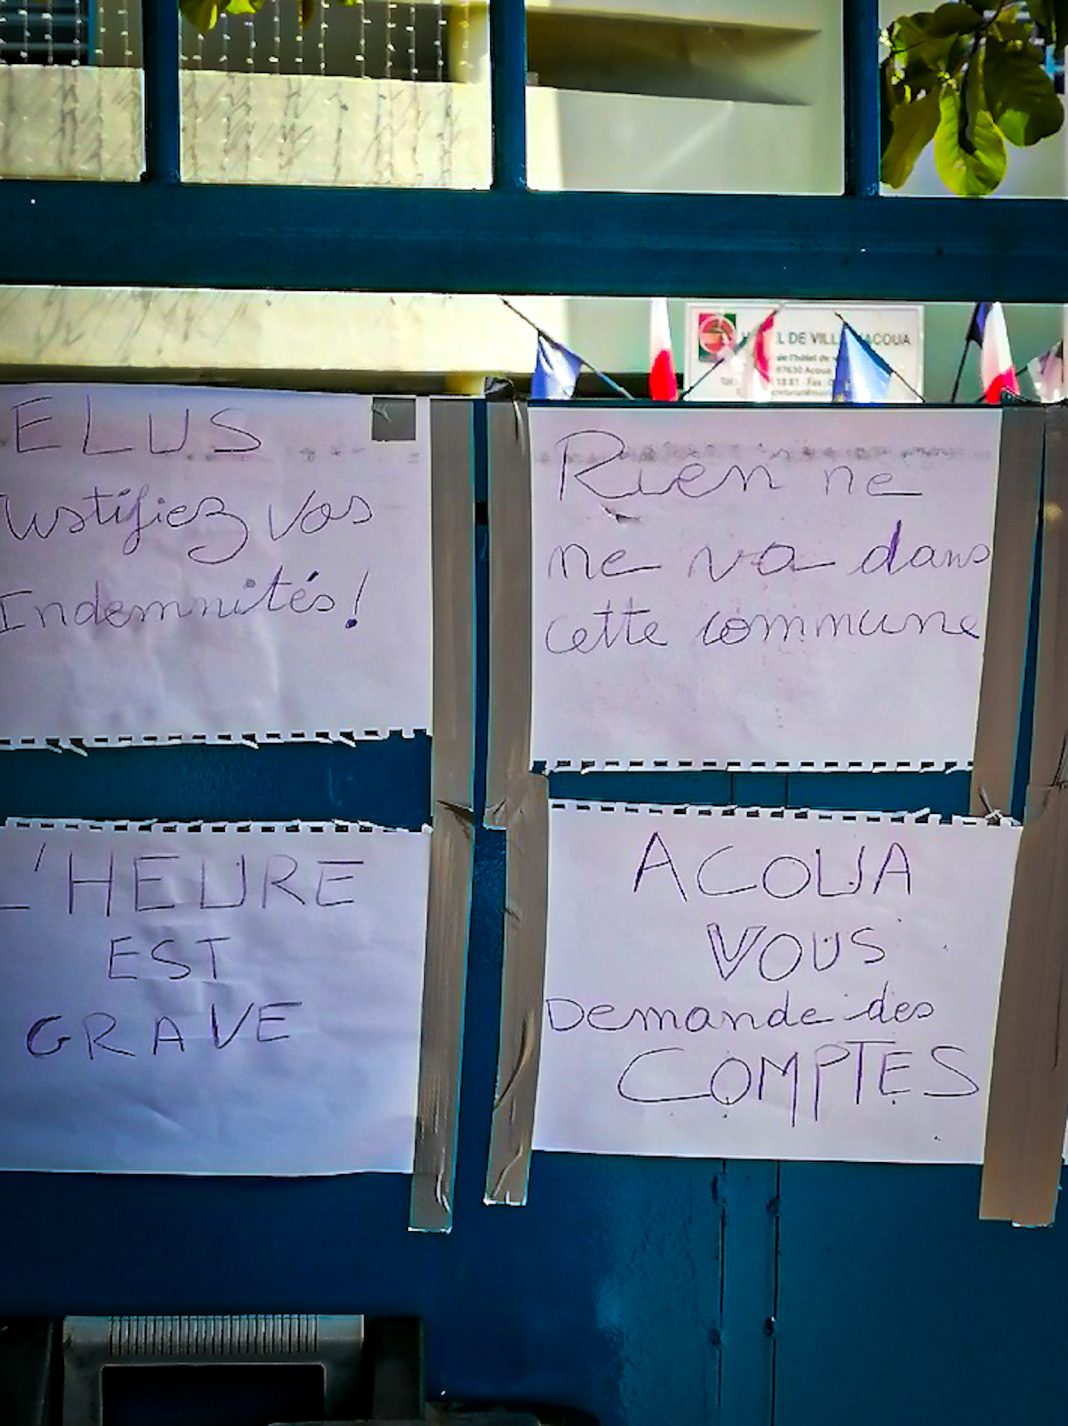 HÔTEL DE VILLE D'ACOUA
97630 Acoua
ELUS
Justifiez vos
Indemnités!
Rien ne
ne va dans
cette commune
L'HEURE
EST
GRAVE
ACOUA
VOUS
Demande des
COMPTES